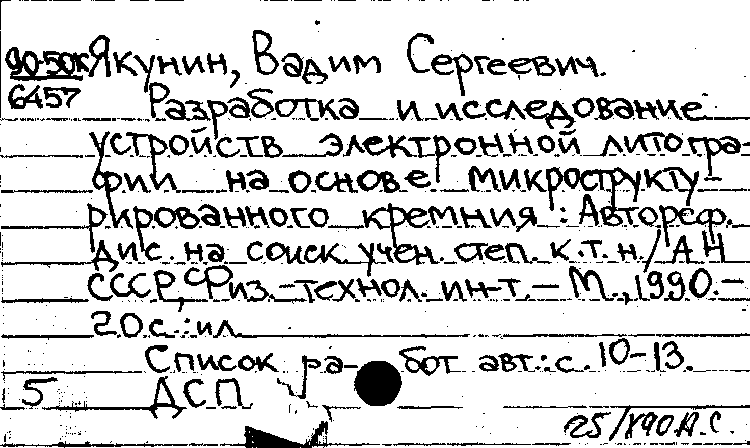 90-50К Якунин, Вадим Сергеевич.
6457 Разработка и исследование
устройств электронной литогра-
фии на основе микрострукту-
рированного кремния : Автореф.
дис. на соиск. учен. степ. к.т.н. / АН
СССР, Физ.-технол. ин-т. – М., 1990. –
20 с. : ил.
Список ра- бот авт.: с. 10-13.
5 ДСП
25/X90